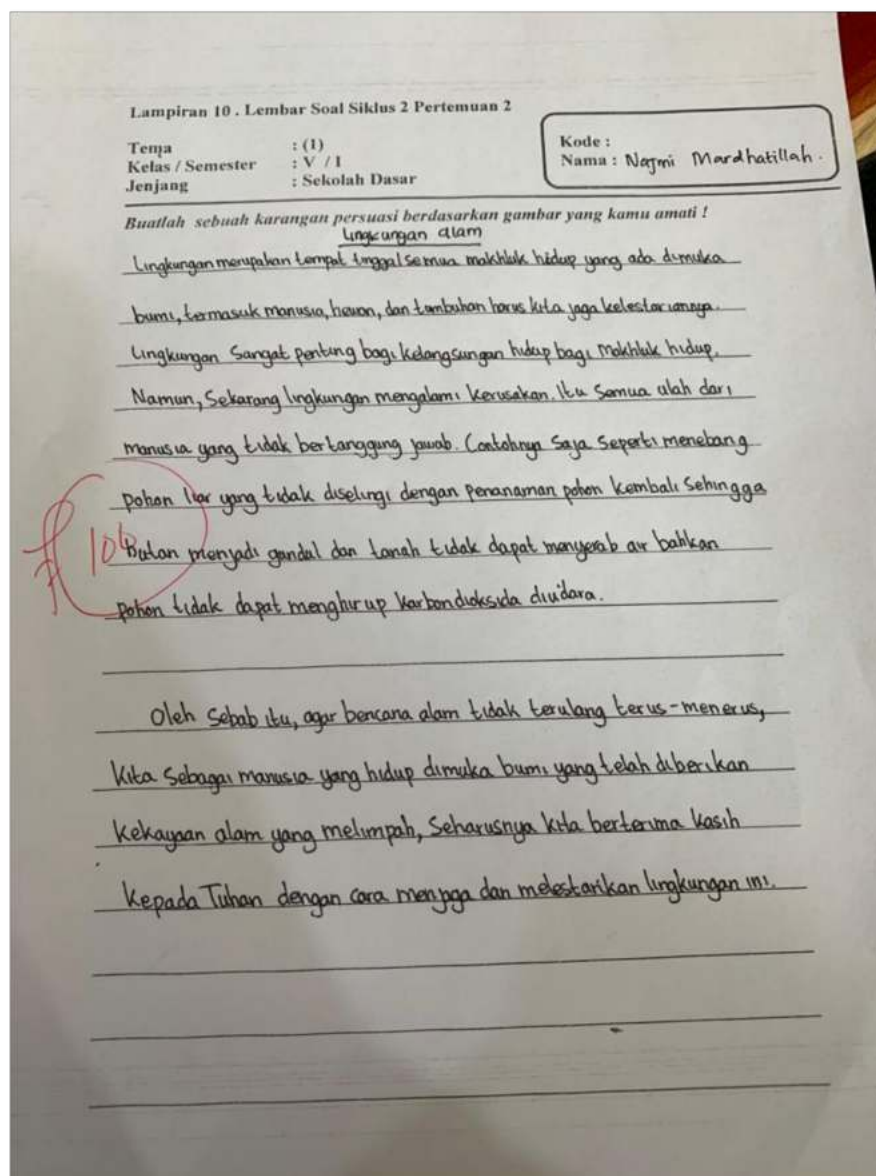 Lampiran 10 . Lembar Soal Siklus 2 Pertemuan 2
Tema : (1)
Kelas / Semester : V / 1
Jenjang : Sekolah Dasar
Kode :
Nama : Najmi Mardhatillah.
Buatlah sebuah karangan persuasi berdasarkan gambar yang kamu amati !
Lingkungan alam
Lingkungan merupakan tempat tinggal semua makhluk hidup yang ada dimuka
bumi, termasuk manusia, hewan, dan tumbuhan harus kita jaga kelestariannya.
Lingkungan Sangat penting bagi kelangsungan hidup bagi makhluk hidup.
Namun, Sekarang lingkungan mengalami kerusakan. Itu Semua ulah dari
manusia yang tidak bertanggung jawab. Contohnya Saja Seperti menebang
pohon liar yang tidak diselingi dengan penanaman pohon kembali Sehingga
100
hutan menjadi gundal dan tanah tidak dapat menyerab air bahkan
pohon tidak dapat menghirup karbondioksida diudara.
Oleh Sebab itu, agar bencana alam tidak terulang terus-menerus,
Kita Sebagai manusia yang hidup dimuka bumi yang telah diberikan
Kekayaan alam yang melimpah, Seharusnya kita berterima kasih
Kepada Tuhan dengan cara menjaga dan melestarikan lingkungan ini.